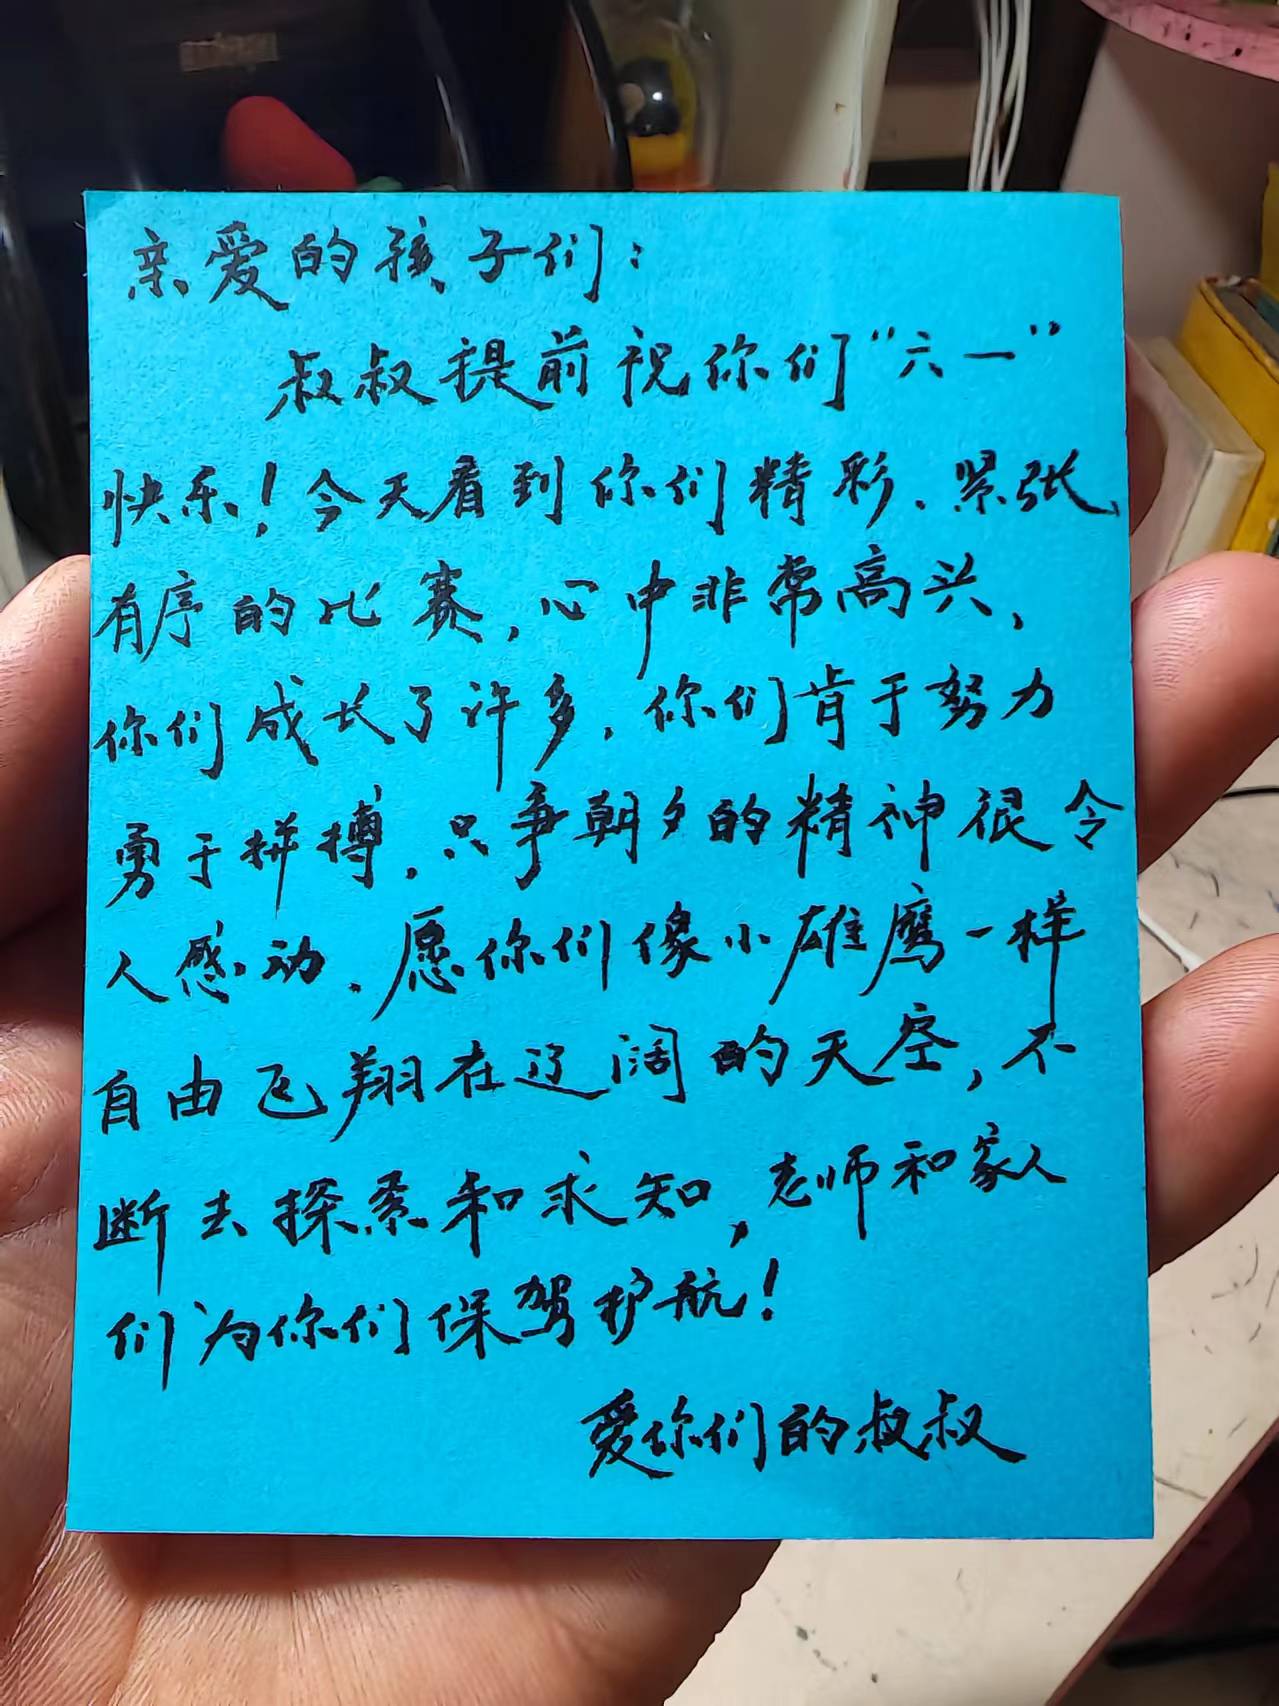 亲爱的孩子们：
叔叔提前祝你们“六一”
快乐！今天看到你们精彩、紧张、
有序的比赛，心中非常高兴，
你们成长了许多，你们肯于努力
勇于拼搏，只争朝夕的精神很令
人感动．愿你们像小雄鹰一样
自由飞翔在辽阔的天空，不
断去探索和求知，老师和家人
们为你们保驾护航！
爱你们的叔叔